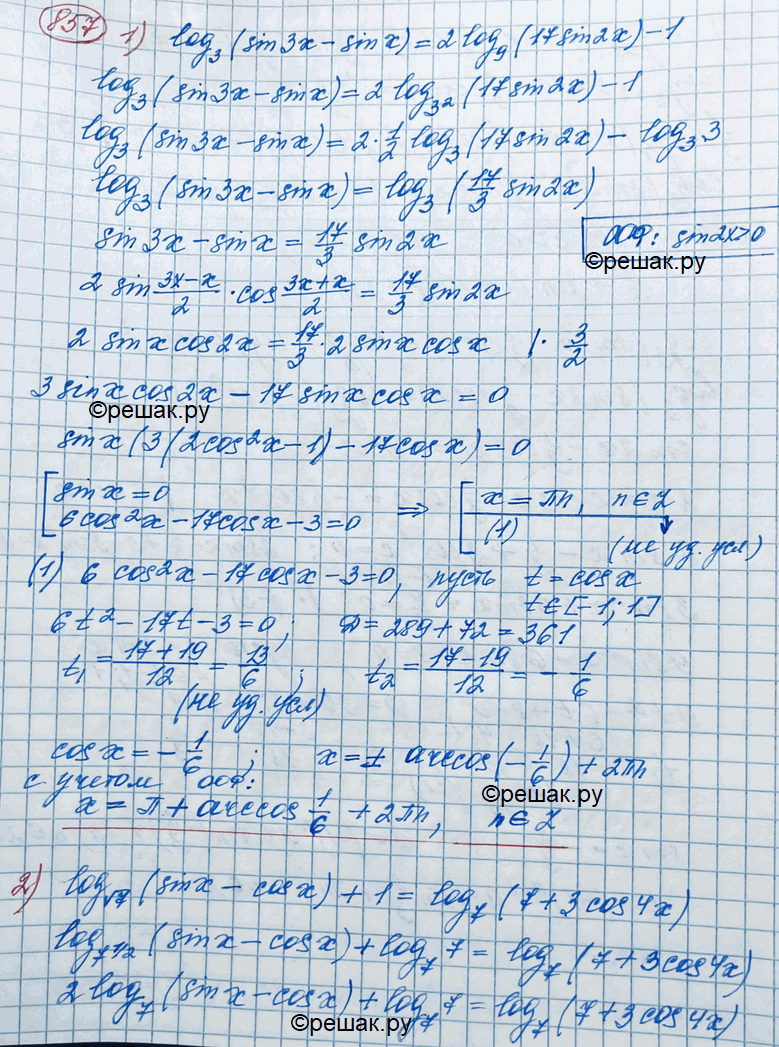 857 1) log₃(sin3x − sinx) = 2log₉(17sin2x) − 1
log₃(sin3x − sinx) = 2log₃²(17sin2x) − 1
log₃(sin3x − sinx) = 2·1/2 log₃(17sin2x) − log₃3
log₃(sin3x − sinx) = log₃(17/3 sin2x)
sin3x − sinx = 17/3 sin2x
ООФ: sin2x>0
©решак.ру
2 sin (3x−x)/2 · cos (3x+x)/2 = 17/3 sin2x
2 sinx cos2x = 17/3 · 2 sinx cosx |· 3/2
3 sinx cos2x − 17 sinx cosx = 0
©решак.ру
sinx(3(2cos²x−1) − 17cosx) = 0
[ sinx = 0 ⇒ [ x = πn, n∈Z
6cos²x − 17cosx − 3 = 0 (1) (не уд. усл)
(1) 6 cos²x − 17cosx − 3 = 0, пусть t = cosx
t∈[−1;1]
6t² − 17t − 3 = 0; D = 289 + 72 = 361
t₁ = (17+19)/12 = 13/6; t₂ = (17−19)/12 = −1/6
(не уд. усл)
cosx = −1/6; x = ± arccos(−1/6) + 2πn
с учетом ООФ:
©решак.ру
x = π + arccos 1/6 + 2πn, n∈Z
2) log√7 (sinx − cosx) + 1 = log₇(7 + 3cos4x)
log₇1/2 (sinx − cosx) + log₇7 = log₇(7 + 3cos4x)
2log₇(sinx − cosx) + log₇7 = log₇(7 + 3cos4x)
©решак.ру